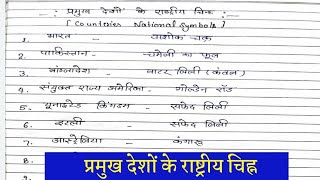 :- प्रमुख देशों के राष्ट्रीय चिह्न :-
[Countries National Symbols]
1. भारत - अशोक चक्र
2. पाकिस्तान - चमेली का फूल
3. बांग्लादेश - वाटर लिली (कमल)
4. संयुक्त राज्य अमेरिका - गोल्डेन रॉड
5. यूनाइटेड किंगडम - सफेद लिली
6. इटली - सफेद लिली
7. आस्ट्रेलिया - कंगारू
8
प्रमुख देशों के राष्ट्रीय चिह्न